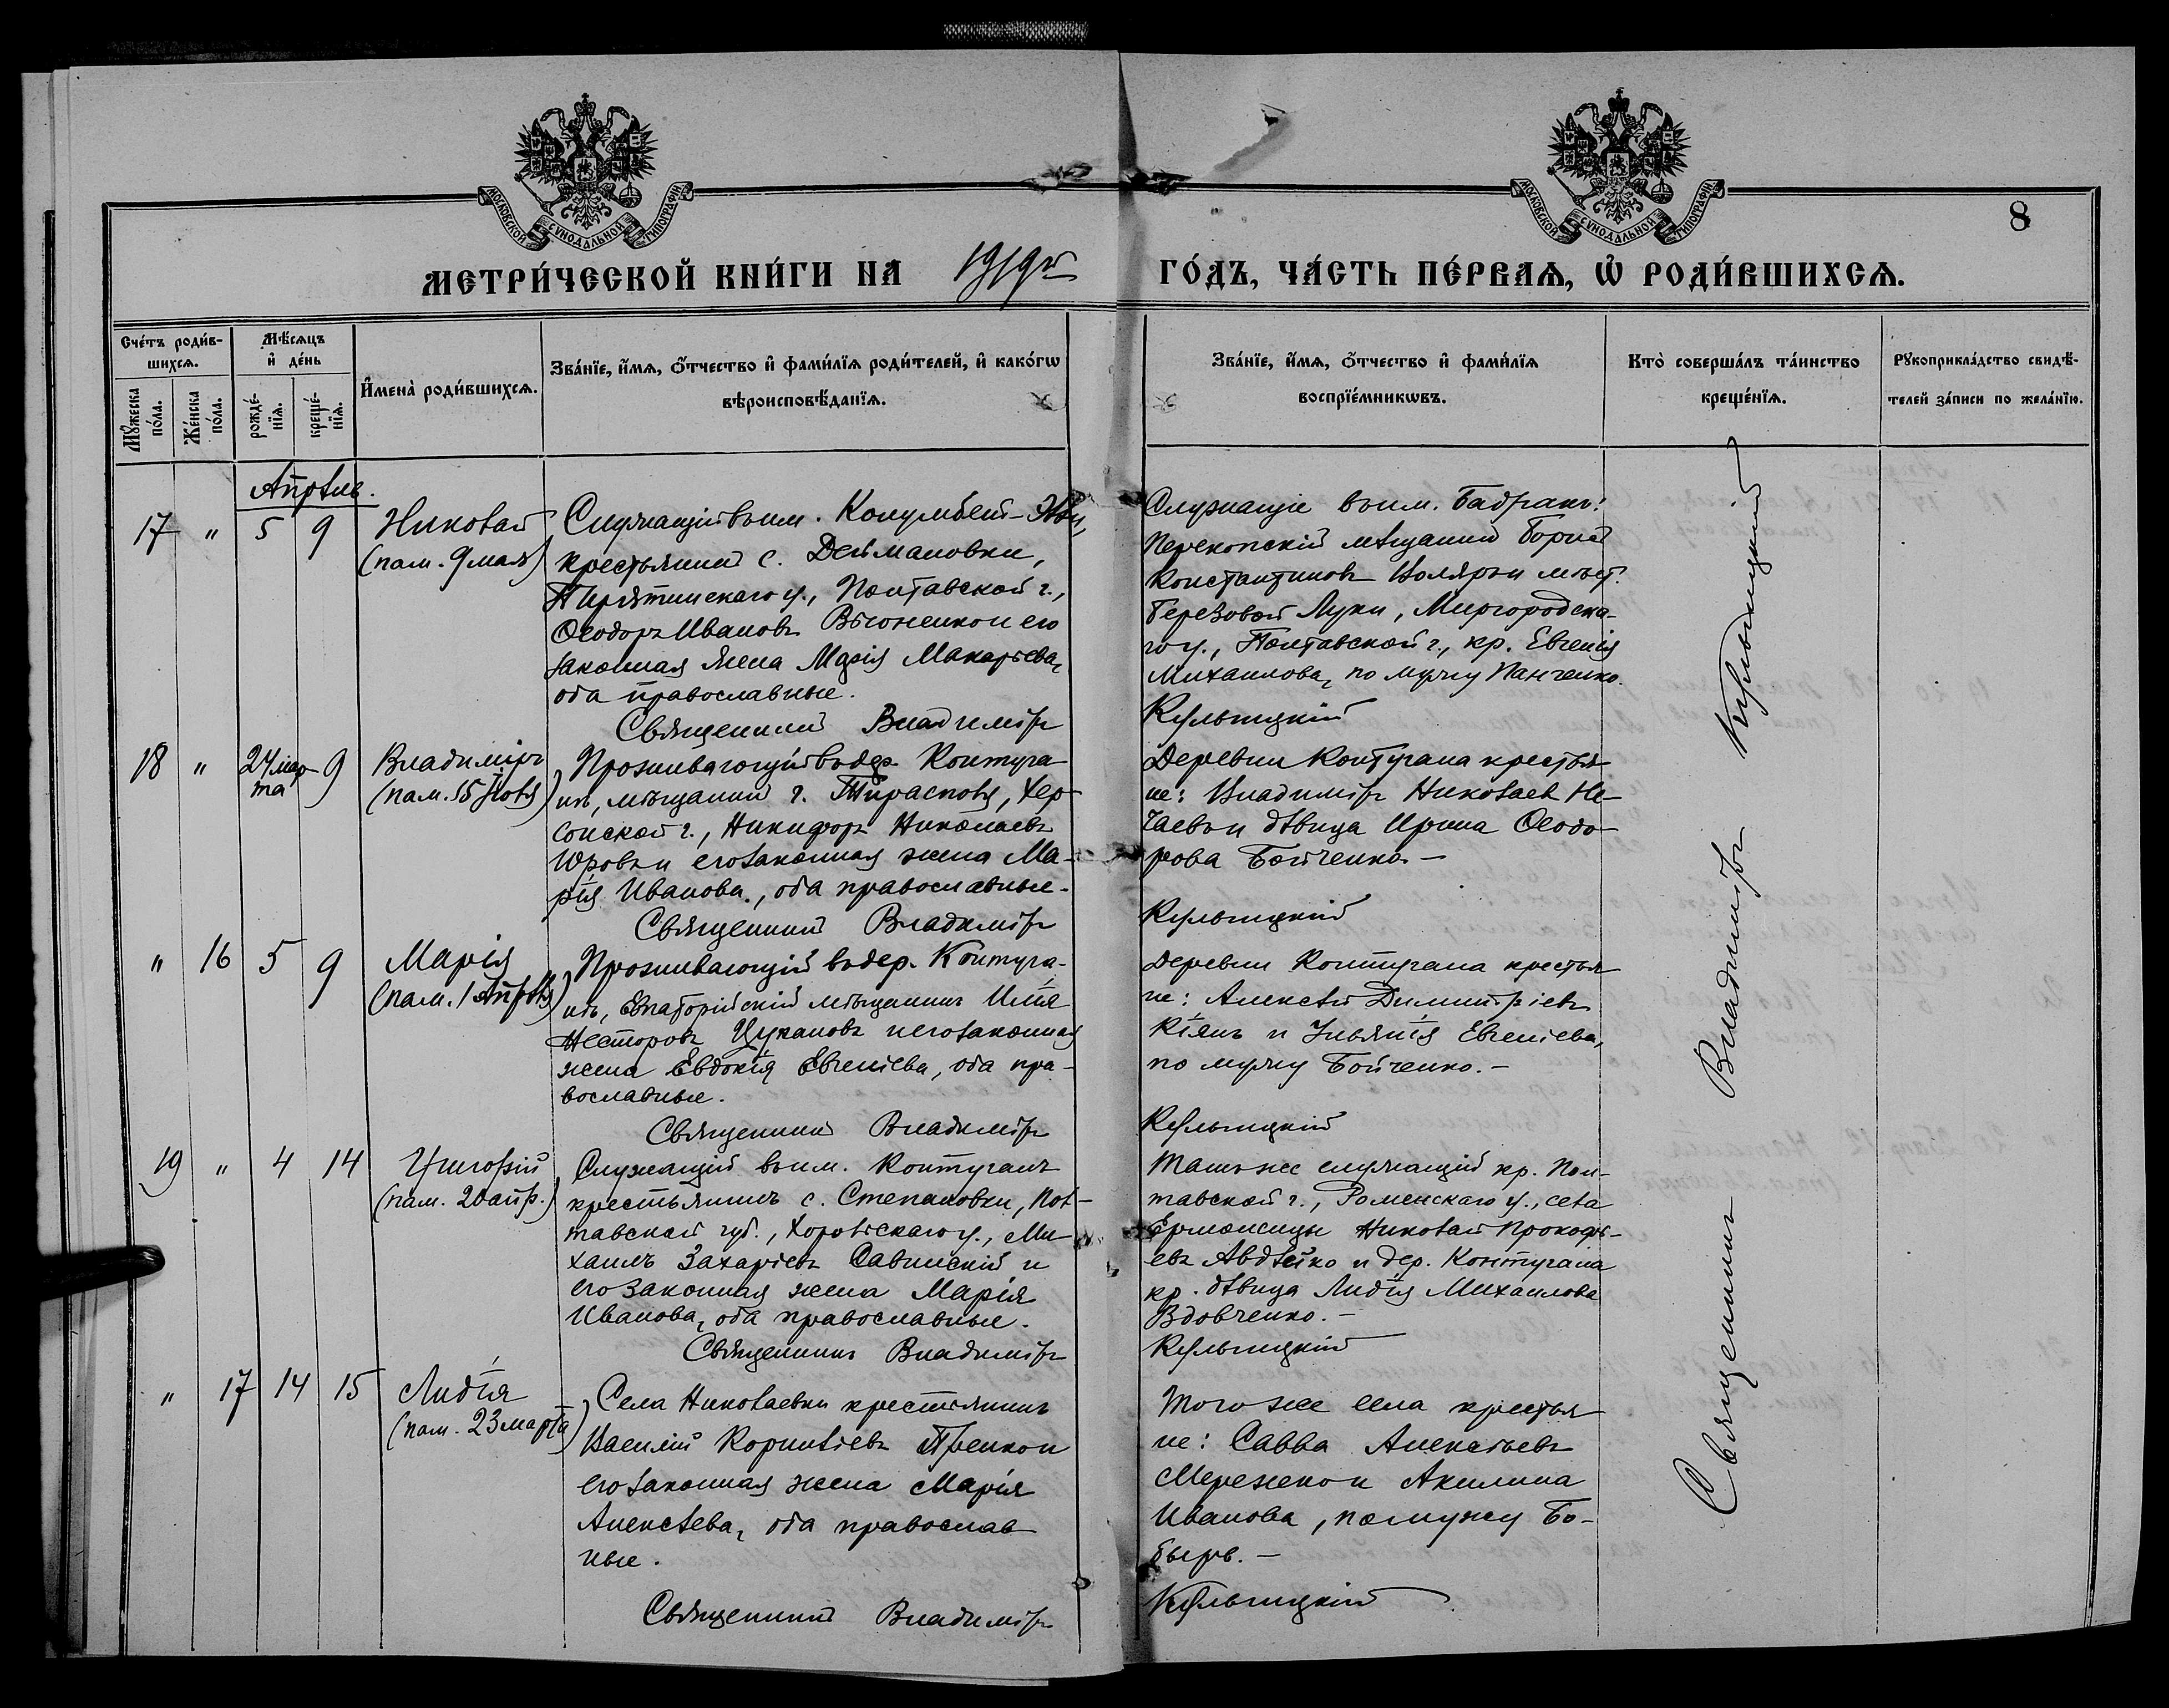 МОСКОВСКОЙ СѴНОДАЛЬНОЙ ТИПОГРАФІИ
МОСКОВСКОЙ СѴНОДАЛЬНОЙ ТИПОГРАФІИ
8
МЕТРИ́ЧЕСКОЙ КНИ́ГИ НА 1919й ГО́ДЪ, ЧА́СТЬ ПЕ́РВАѦ, Ѡ҆ РОДИ́ВШИХСѦ.
Сче́тъ роди́в-
шихсѧ.
Мѣ́сѧцъ
и҆ де́нь
Мꙋ́жеска по́ла.
Же́нска по́ла.
рожде́-
нїѧ.
креще́-
нїѧ.
И҆мена̀ роди́вшихсѧ.
Зва́нїе, и҆́мѧ, ѻ҆́тчество и҆ фами́лїѧ роди́телей, и҆ како́гѡ
вѣроисповѣ́данїѧ.
Зва́нїе, и҆́мѧ, ѻ҆́тчество и҆ фами́лїѧ
воспрїе́мникѡвъ.
Кто̀ соверша́лъ та́инство
креще́нїѧ.
Рꙋкоприкла́дство свидѣ́-
телей за́писи по жела́нїю.
Апрѣль.
17 " 5 9 Николай
(пам. 9 мая)
Служащій въ им.
крестьянин с. Деймановки,
Пирятинскаго у., Полтавской г.,
Ѳеодоръ Ивановъ и его
законная жена Марія Макарьева,
оба православные.
Священник Владиміръ
Служащіе въ им. Бадракъ:
Перекопскій мѣщанин Борис
Константиновъ и мѣст.
Березовой Луки, Миргородска-
го у., Полтавской г., кр. Евгенія
Михаилова, по мужу Панченко.
Кульчицкій
18 " 24 мар-
та 9 Владиміръ
(пам. 15 Іюля)
Проживающій въ дер. Контуга-
нѣ, мѣщанин г. Тирасполя, Хер-
сонской г., Никифоръ Николаевъ
Юровъ и его законная жена Ма-
рія Иванова, оба православные.
Священник Владиміръ
Деревни Контугана крестья-
не: Владиміръ Николаев Не-
чаевъ и дѣвица Ирина Ѳеодо-
рова Бойченко. —
Кульчицкій
" 16 5 9 Марія
(пам. 1 Апрѣля)
Проживающій въ дер. Контуга-
нѣ, Евпаторійскій мѣщанинъ Илія
Несторовъ Цукановъ и его законная
жена Евдокія Евгеніева, оба пра-
вославные.
Священник Владиміръ
Деревни Контугана крестья-
не: Алексѣй Димитріевъ
Кіянъ и Ульянія Евгеніева,
по мужу Бойченко. —
Кульчицкій
19 " 4 14 Григорій
(пам. 20 апр.)
Служащій въ им. Контуганъ
крестьянинъ с. Степановки, Пол-
тавской губ., Хорольскаго у., Ми-
хаилъ Захаріевъ Савинскій и
его законная жена Марія
Иванова, оба православные.
Священникъ Владиміръ
Тамъ же служащій кр. Пол-
тавской г., Роменскаго у., села
Николай Прокофь-
евъ Авдѣйко и дер. Контугана
кр. дѣвица Лидія Михаилова
Вдовченко. —
Кульчицкій
" 17 14 15 Лидія
(пам. 23 марта)
Села Николаевки крестьянинъ
Василій Корниліевъ и
его законная жена Марія
Алексѣева, оба православ-
ные.
Священник Владиміръ
Того же села крестья-
не: Савва Алексѣевъ
Мережко и Акилина
Иванова, по мужу Бо-
бырь. —
Кульчицкій
Священникъ Владиміръ Кульчицкій